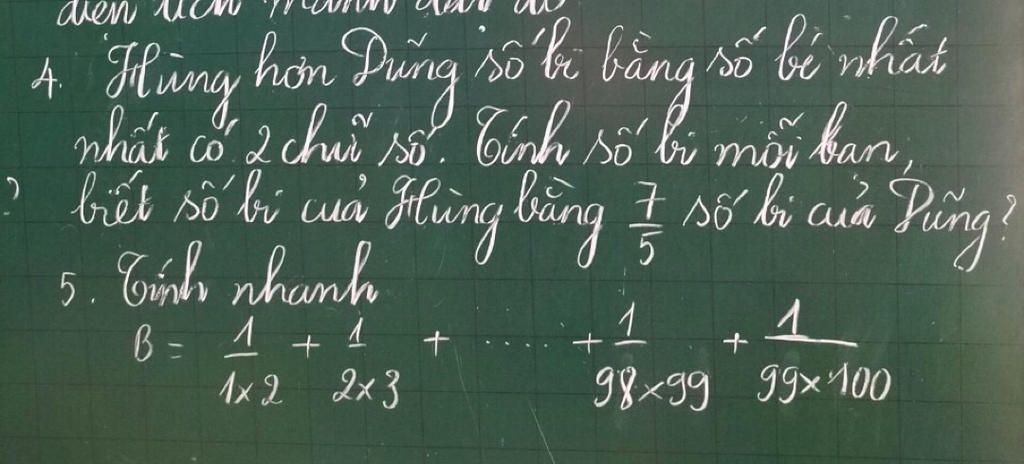 diện tích mảnh đất đó
4. Hùng hơn Dũng số bi bằng số bé nhất
nhất có 2 chữ số. Tính số bi mỗi bạn,
? biết số bi của Hùng bằng 7/5 số bi của Dũng?
5. Tính nhanh
B = 1/1x2 + 1/2x3 + ..... + 1/98x99 + 1/99x100